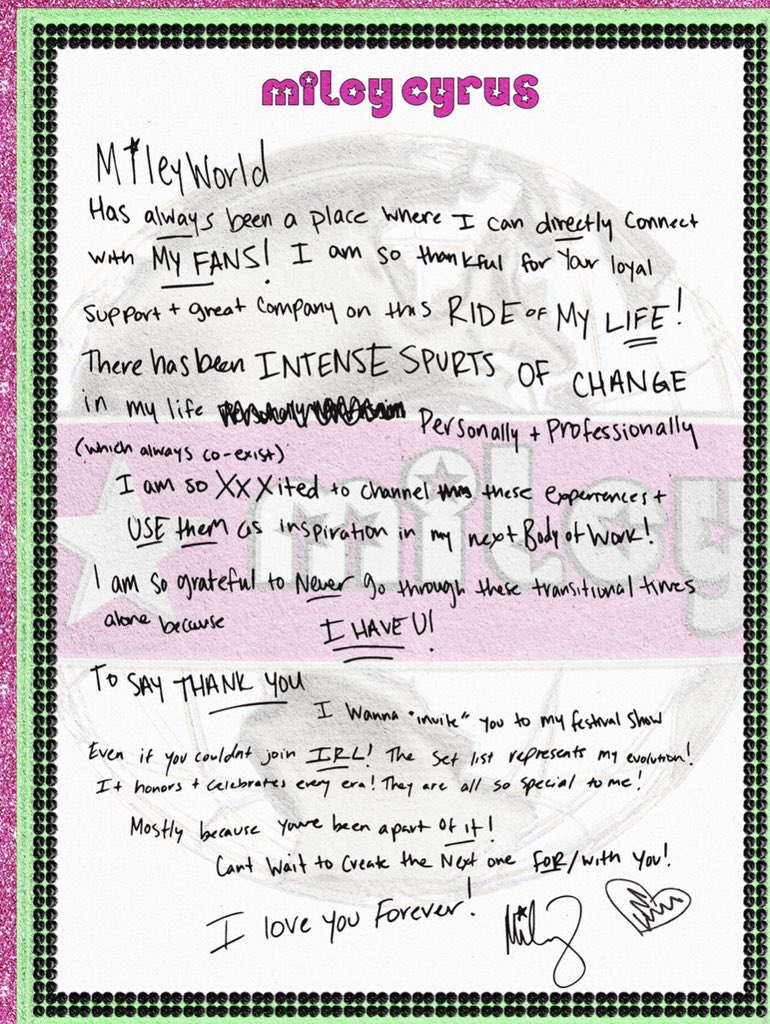 miley cyrus
MileyWorld
Has always been a place where I can directly connect
with MY FANS! I am so thankful for your loyal
support + great company on this RIDE OF MY LIFE!
There has been INTENSE SPURTS OF CHANGE
in my life Personally + Professionally
(which always co-exist)
I am so XXXited to channel these experiences +
USE them as inspiration in my next Body of Work!
miley
I am so grateful to Never go through these transitional times
alone because I HAVE U!
To SAY THANK YOU
I Wanna "invite" you to my festival show
Even if you couldnt join IRL! The set list represents my evolution!
It honors + celebrates every era! They are all so special to me!
Mostly because youve been apart of it!
Cant Wait to Create the Next one FOR/with you!
I love you Forever! Miley